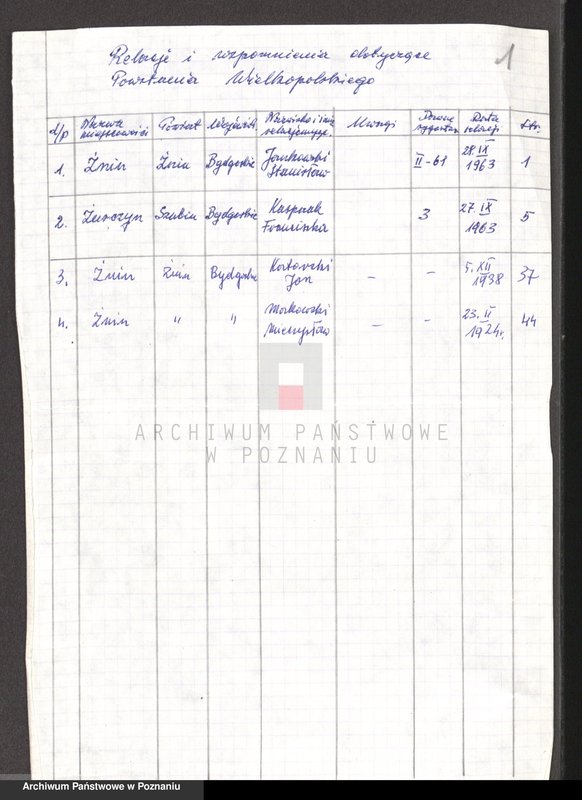 1
Relacje i wspomnienia dotyczące
Powstania Wielkopolskiego
L/p Nazwa miejscowości Powiat Wojewódz. Nazwisko i imię relacjonując. Uwagi Data relacji Str.
1. Żnin Żnin Bydgoskie Jankowski Stanisław II-61 28.IX 1963 1
2. Szubin Bydgoskie Kasprzak Franciszka 3 27.IX 1963 5
3. Żnin Żnin Bydgoskie Jan – – 5.XII 1938 37
4. Żnin " " Mieczysław – – 23.II 1924r. 44
ARCHIWUM PAŃSTWOWE
W POZNANIU
Archiwum Państwowe w Poznaniu